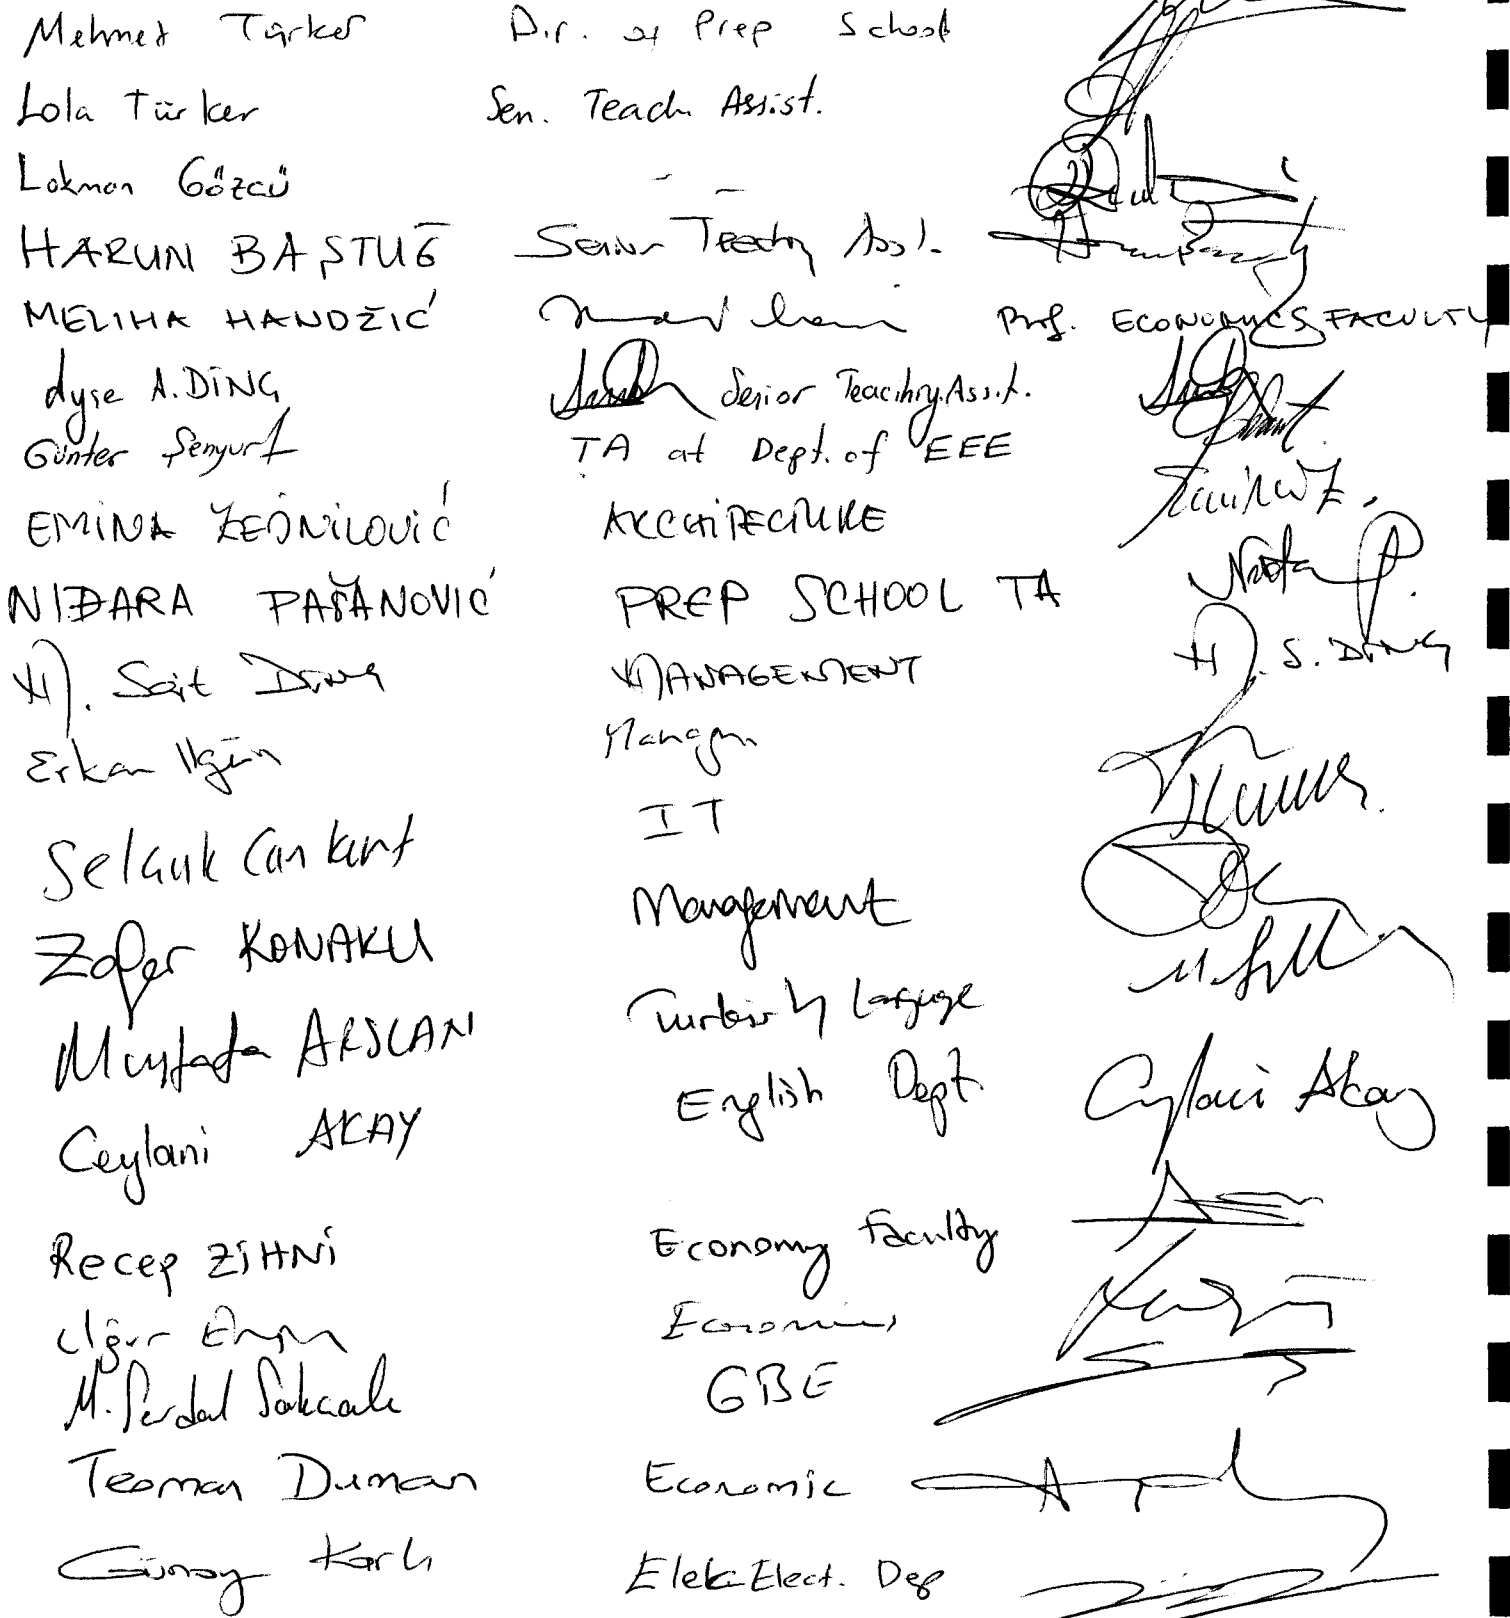 Mehmet Türker Dir. of Prep School
Lola Türker Sen. Teach. Assist.
Lokman Gözcü - -
HARUN BAŞTUĞ Senior Teaching Asst.
MELIHA HANDŽIĆ Prof. ECONOMICS FACULTY
Ayşe A. DİNÇ Senior Teaching Assist.
Günter Şenyurt TA at Dept. of EEE
EMINA ZEJNILOVIĆ ARCHITECTURE
NIĐARA PAŠANOVIĆ PREP SCHOOL TA
M. Sait DİNÇ MANAGEMENT M. S. DİNÇ
Erkan Ilgün Managm
Selçuk Cankurt IT
Zafer KONAKLI Management
Mustafa ARSLAN Turkish Language
Ceylani AKAY English Dept. Ceylani Akay
Recep ZİHNİ Economy Faculty
Uğur Ergun Economics
M. Serdal Sakcalı GBE
Teoman Duman Economic
Günay Karlı Elek-Elect. Dep